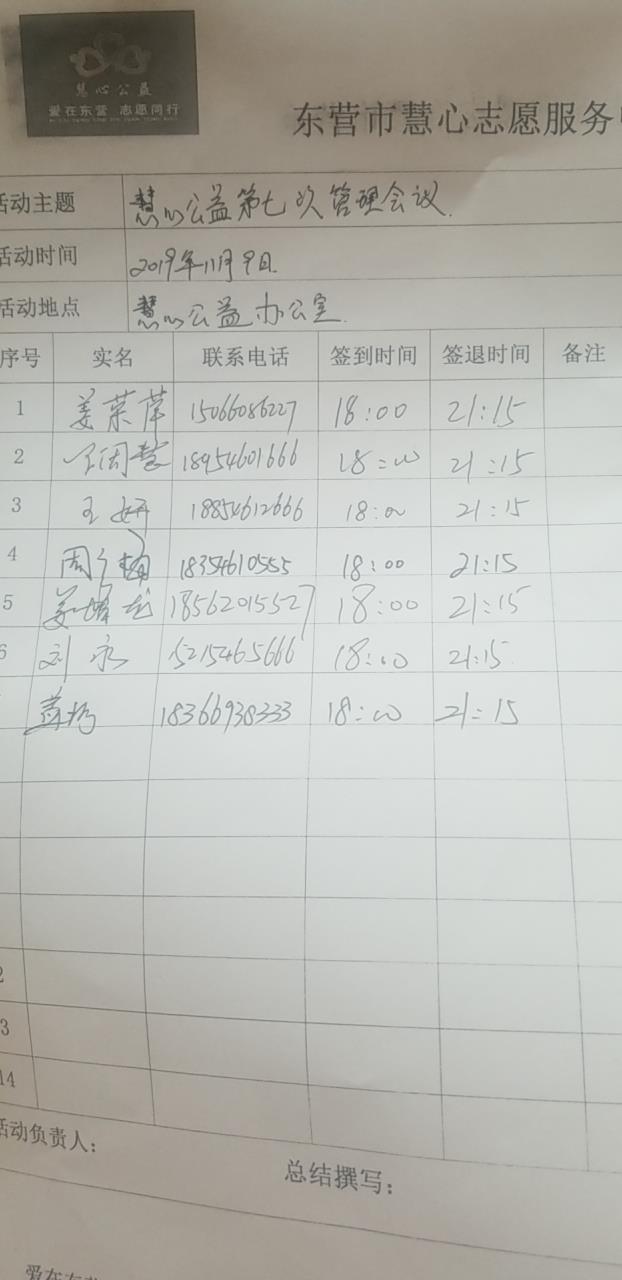 慧心公益
爱在东营 志愿同行
东营市慧心志愿服务
活动主题 慧心公益第七次管理会议.
活动时间 2019年11月9日.
活动地点 慧心公益办公室.
序号 实名 联系电话 签到时间 签退时间 备注
1 姜荣萍 15066086227 18:00 21:15
2 18954601666 18:00 21:15
3 王妍 18854612666 18:00 21:15
4 18354610555 18:00 21:15
5 18562015527 18:00 21:15
6 刘永 15215465666 18:00 21:15
18366938333 18:00 21:15
2
3
14
活动负责人:
总结撰写:
爱在东营